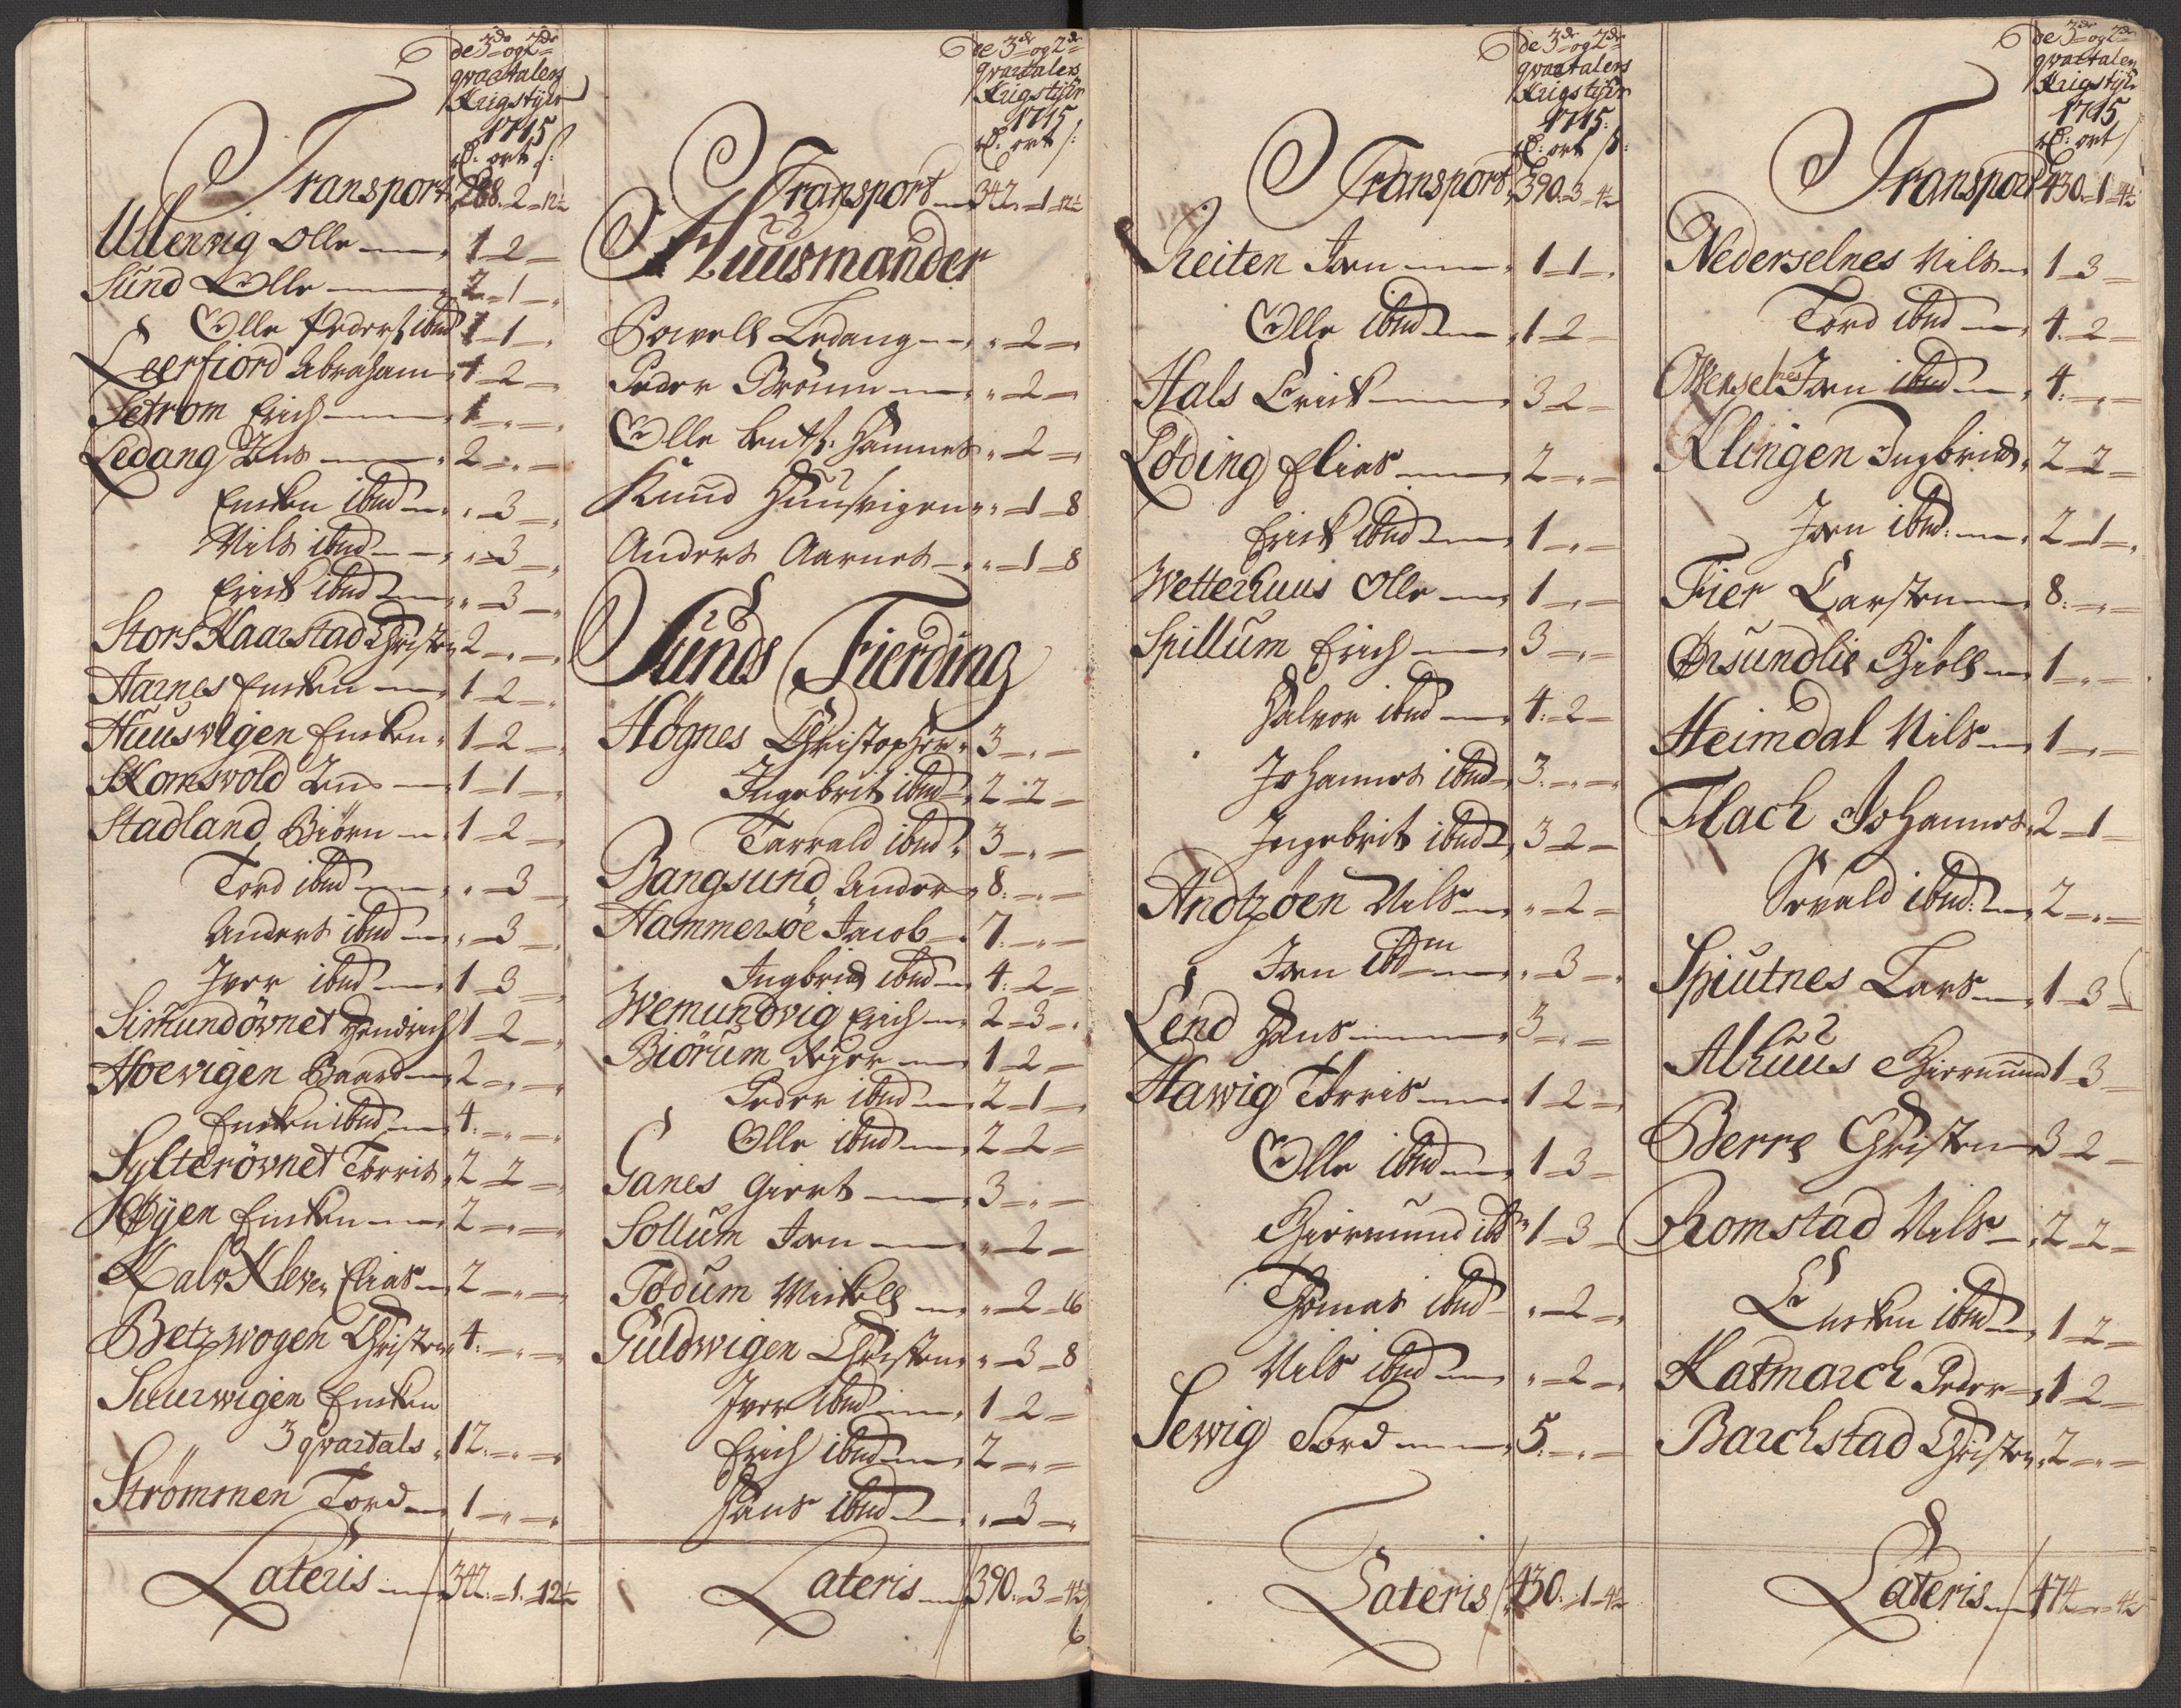 de 3de og 2de
qvartalers
Krigstijr
1715
rd: ort s:
Transport 288 - 2 - 12½
Ullerwig Olle 1 - 2 -
Sund Olle 2 - 1 -
Olle Peders: ibnd 1 - 1 -
Leerfiord Abraham 1 - 2 -
Setrom Erich 1 - " -
Ledang Jens 2 - " -
Ensten ibnd " - 3 -
Nils ibnd " - 3 -
Erick ibnd " - 3 -
Stors Kaarstad Christen 2 - " -
Aarnes Ensten 1 - 2 -
Huusvigen Ensten 1 - 2 -
Skomsvold Jens 1 - 1 -
Stadland Biörn 1 - 2 -
Tord ibnd " - 3 -
Anders ibnd " - 3 -
Iver ibnd 1 - 3 -
Simundövnet Hendrich 1 - 2 -
Hoevigen Baard 2 - " -
Ensten ibnd 4: - " -
Sylterövnet Torris 2 - 2 -
Øyen Ensten 2 - " -
Kalv Kleven Elias 2 - " -
Betzwogen Christen 4: - " -
Suurwigen Ensten
3 qvartals 12: - " -
Strömmen Tord 1 - " -
Lateris 342: - 1: 12½
de 3de og 2de
qvartalers
Krigstijr
1715
rd: ort s:
Transport 342 - 1 - 12½
Huusmænder
Powell Ledang " - 2 -
Peder Brönm " - 2 -
Olle Bents: Hamnes " - 2 -
Knud Huusvigen " - 1 - 8
Anders Aarnes " - 1 - 8
Sunds Fierding
Högnes Christopher 3 - " -
Ingebrit ibnd 2 - 2 -
Tarrald ibnd 3 - " -
Bangsund Anders 8: - " -
Hammersöe Jacob 7: - " -
Ingbrid ibnd 4: 2 -
Wemundvig Erich 2 - 3 -
Biörum Asger 1 - 2 -
Peder ibnd 2 - 1 -
Olle ibnd 2 - 2 -
Ganes Giert 3 - " -
Sollum Jon " - 2 -
Tödum Mickell " - 2 - 16
Guldwigen Christen " - 3 - 8
Iver ibnd 1 - 2 -
Erich ibnd 2 - " -
Hans ibnd " - 3 -
Lateris 390: - 3 - 4½
6
de 3de og 2de
qvartalers
Krigstijr
1715:
rd: ort s:
Transport 390: 3 - 4½
Reiten Jon 1 - 1 -
Olle ibnd 1 - 2 -
Hals Erick 3 - 2 -
Löding Elias 2 - " -
Erick ibnd 1 - " -
Wetterhuus Olle 1 - " -
Spillum Erich 3 - " -
Halvor ibnd 4: - 2 -
Johannes ibnd 3: - " -
Ingebrit ibnd 3 - 2 -
Andtzöen Nils " - 2 -
Jon ibdm " - 3 -
Lend Hans 3 - " -
Hawig Torris 1 - 2 -
Olle ibnd 1 - 3 -
Giermund ibd 1 - 3 -
Thomas ibnd " - 2 -
Nils ibnd " - 2 -
Sewig Tord 5: - " -
Lateris 430: - 1 - 4½
de 3de og 2de
qvartalers
Krigstijr
1715
rd: ort
Transport 430: - 1 - 4½
Nederselnes Nils 1 - 3 -
Tord ibnd 4: - 2 -
Øfverselnes Jon ibnd 4: - " -
Klingen Ingbrid 2 - 2 -
Jon ibnd: 2 - 1 -
Fier Carsten 8: - " -
Ørsundlie Kield 1 - " -
Heimdal Nils 1 - " -
Flach Johannes 2 - 1 -
Sevald ibnd: 2 - " -
Spiutnes Lars 1 - 3 -
Alhuus Giermund 1 - 3 -
Berre Christen 3 - 2 -
Romstad Nils 2 - 2 -
Ensten ibnd 1 - 2 -
Katmarch Peder 1 - 2 -
Barchstad Christen 2 - " -
Lateris 474 - " - 4½